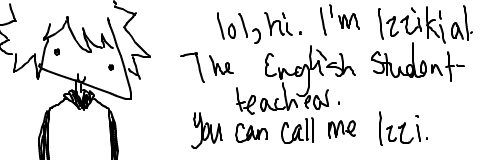 lol, hi. I'm Izzikial.
The English Student-
teachear.
You can call me Izzi.